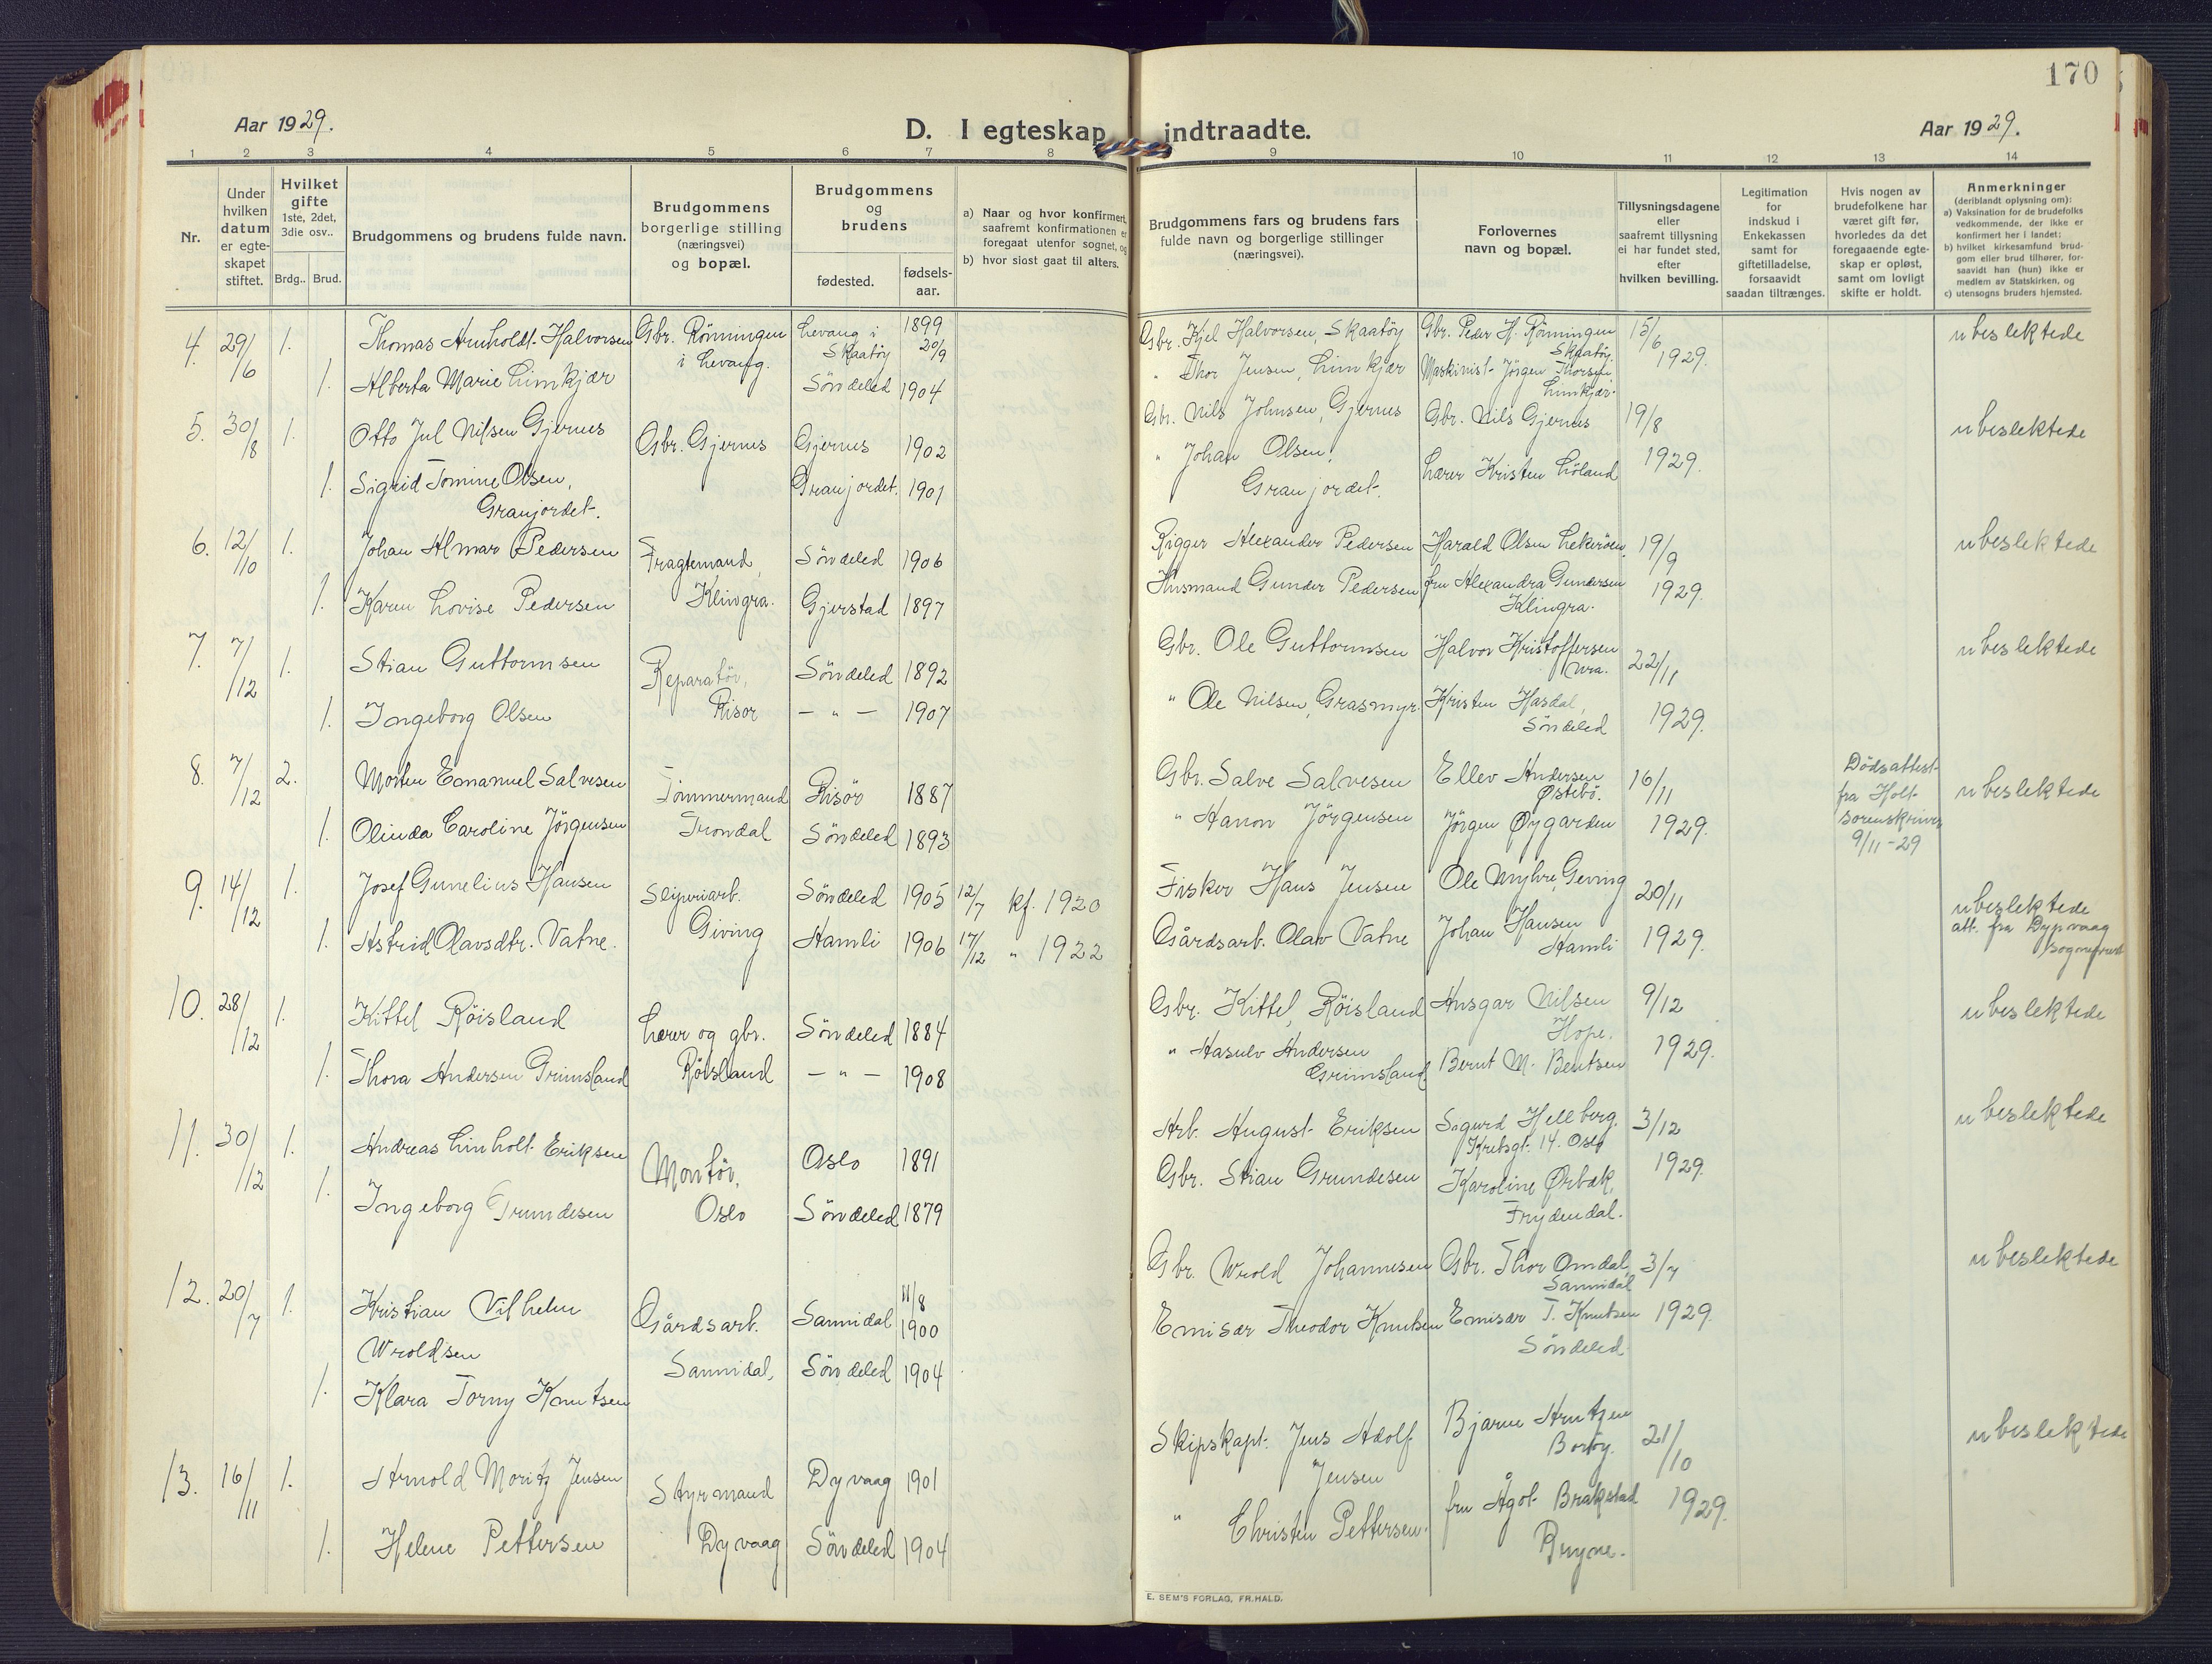 170
Aar 1929.
D. I egteskap indtraadte.
Aar 1929.
1 2 3 4 5 6 7 8 9 10 11 12 13 14
Nr.
Under hvilken datum er egte-skapet stiftet.
Hvilket gifte 1ste, 2det, 3die osv..
Brdg.. Brud.
Brudgommens og brudens fulde navn.
Brudgommens borgerlige stilling (næringsvei) og bopæl.
Brudgommens og brudens
fødested. fødsels-aar.
a) Naar og hvor konfirmert, saafremt konfirmationen er foregaat utenfor sognet, og
b) hvor sidst gaat til alters.
Brudgommens fars og brudens fars fulde navn og borgerlige stillinger (næringsvei).
Forlovernes navn og bopæl.
Tillysningsdagene eller saafremt tillysning ei har fundet sted, efter hvilken bevilling.
Legitimation for indskud i Enkekassen samt for giftetilladelse, forsaavidt saadan tiltrænges.
Hvis nogen av brudefolkene har været gift før, hvorledes da det foregaaende egte-skap er opløst, samt om lovligt skifte er holdt.
Anmerkninger (deriblandt oplysning om):
a) Vaksination for de brudefolks vedkommende, der ikke er konfirmert her i landet;
b) hvilket kirkesamfund brud-gom eller brud tilhører, for-saavidt han (hun) ikke er medlem av Statskirken, og
c) utensogns bruders hjemsted.
4. 29/6 1. Thomas Arnholdt Halvorsen Gbr. Rönningen i Levang. Levang i Skaatöy 1899 20/9 Gbr. Kjel Halvorsen, Skaatöy Gbr. Peder H. Rönningen Skaatöy. 15/6 ubeslektede
1. Alberta Marie Limkjær Söndeled 1904 " Thor Jensen, Limkjær Maskinist Jörgen Thorsen, Limkjær. 1929.
5. 30/8 1. Otto Jul Nilsen Gjernes Gbr. Gjernes Gjernes 1902 Gbr. Nils Johnsen, Gjernes Gbr. Nils Gjernes 19/8 ubeslektede
1. Sigrid Tomine Olsen, Granjordet. Granjordet. 1901 " Johan Olsen, Granjordet. Lærer Kristen Löland 1929.
6. 12/10 1. Johan Almar Pedersen Fragtemand, Klingra. Söndeled 1906 Rigger Alexander Pedersen Harald Olsen 19/9 ubeslektede
1. Karen Lovise Pedersen Gjerstad 1897 Husmand Gunder Pedersen fru Alexandra Gundersen Klingra. 1929.
7. 7/12 1. Stian Guttormsen Reparatör, Risör Söndeled 1892 Gbr. Ole Guttormsen Halvor Kristoffersen 22/11 ubeslektede
1. Ingeborg Olsen — " — 1907 " Ole Nilsen, Grasmyr. Kristen Hasdal, Söndeled 1929.
8. 7/12 2. Morten Emanuel Salvesen Tömmermand Trondal Risör 1887 Gbr. Salve Salvesen Ellev Andersen Østebö. 16/11 Dödsattest fra Holt sorenskriver 9/11-29 ubeslektede
1. Olinda Caroline Jörgensen Söndeled 1893 " Hanon Jörgensen Jörgen Øygarden 1929.
9. 14/12 1. Josef Gunelius Hansen Sliperiarb. Giving Söndeled 1905 12/7 kf. 1920 Fisker Hans Jensen Ole Myhre, Geving 20/11 ubeslektede att. fra Dypvaag sogneprest
1. Astrid Olavsdtr. Vatne. Hamli 1906 17/12 " 1922 Gårdsarb. Olav Vatne Johan Hansen Hamli 1929.
10. 28/12 1. Kittel Röisland Lærer og gbr. Röisland Söndeled 1884 Gbr. Kittel, Röisland Ansgar Nilsen Hope. 9/12 ubeslektede
1. Thora Andersen Grimsland — " — 1908 " Hasulv Andersen Grimsland Bernt M. Bentsen 1929.
11. 30/12 1. Andreas Linholt Eriksen Montör, Oslo Oslo 1891 Arb. August Eriksen Sigurd Hellberg. 14. Oslo 3/12 ubeslektede
1. Ingeborg Grundesen Söndeled 1879 Gbr. Stian Grundesen Karoline Ørbæk, Frydendal. 1929.
12. 20/7 1. Kristian Vilhelm Wroldsen Gårdsarb. Sannidal, Sannidal 11/8 1900 Gbr. Wrold Johannesen Gbr. Thor Omdal, Sannidal 3/7 ubeslektede
1. Klara Torny Knutsen Söndeled 1904 Emisær Theodor Knutsen Emisær T. Knutsen Söndeled. 1929.
13. 16/11 1. Arnold Moritz Jensen Styrmand Dyvaag Dyvaag 1901 Skipskapt. Jens Adolf Jensen Bjarne Arntzen Boröy. 21/10 ubeslektede
1. Helene Pettersen Söndeled 1904 " Christen Pettersen. fru Ågot Brakstad Bryne. 1929.
E. SEM'S FORLAG, FR.HALD.